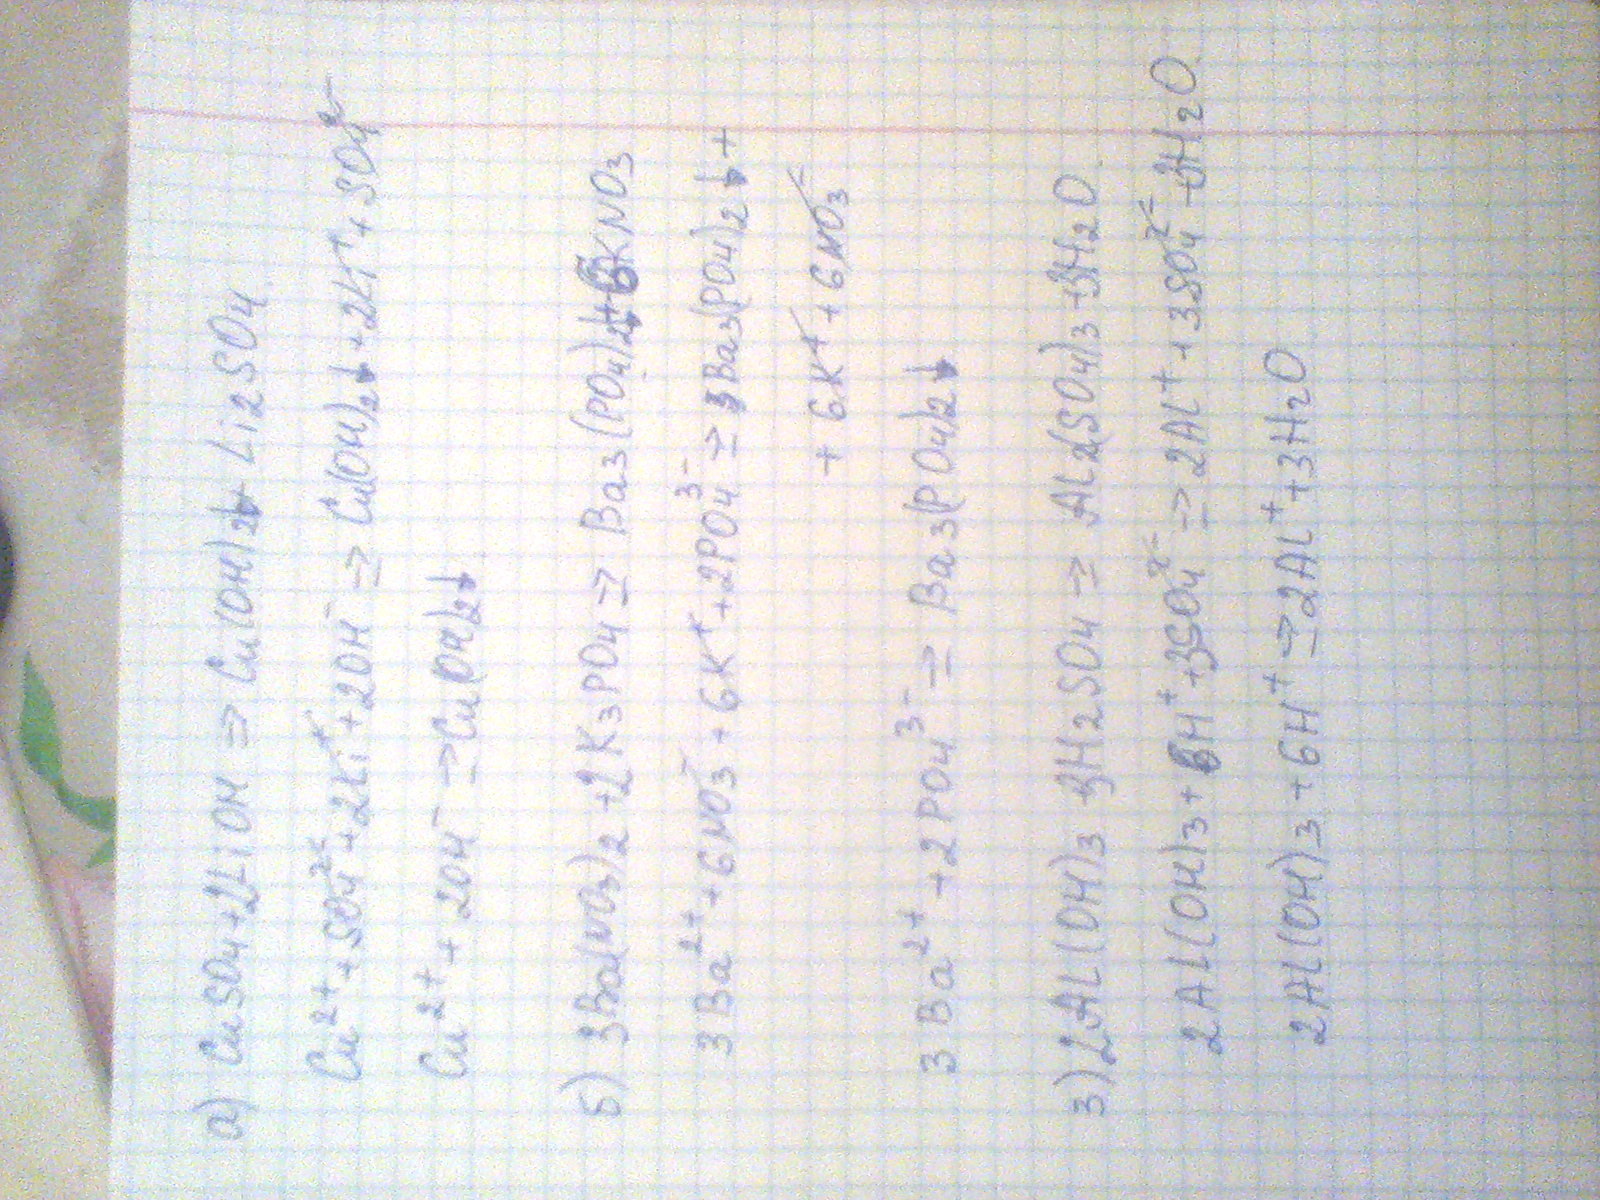 а) CuSO4+2LiOH => Cu(OH)2↓ Li2SO4
Cu2+ + SO4 2- + 2Li+ + 2OH- => Cu(OH)2↓ + 2Li+ + SO4 2-
Cu2+ + 2OH- => Cu(OH)2↓
б) 3Ba(NO3)2 + 2K3PO4 => Ba3(PO4)2↓+6KNO3
3Ba2+ + 6NO3- + 6K+ + 2PO4 3- => Ba3(PO4)2↓ +
+ 6K+ + 6NO3-
3Ba2+ + 2PO4 3- => Ba3(PO4)2↓
3) 2Al(OH)3 3H2SO4 => Al2(SO4)3+3H2O
2Al(OH)3 + 6H+ + 3SO4 2- => 2Al+ + 3SO4 2- 3H2O
2Al(OH)3 + 6H+ => 2Al+ + 3H2O